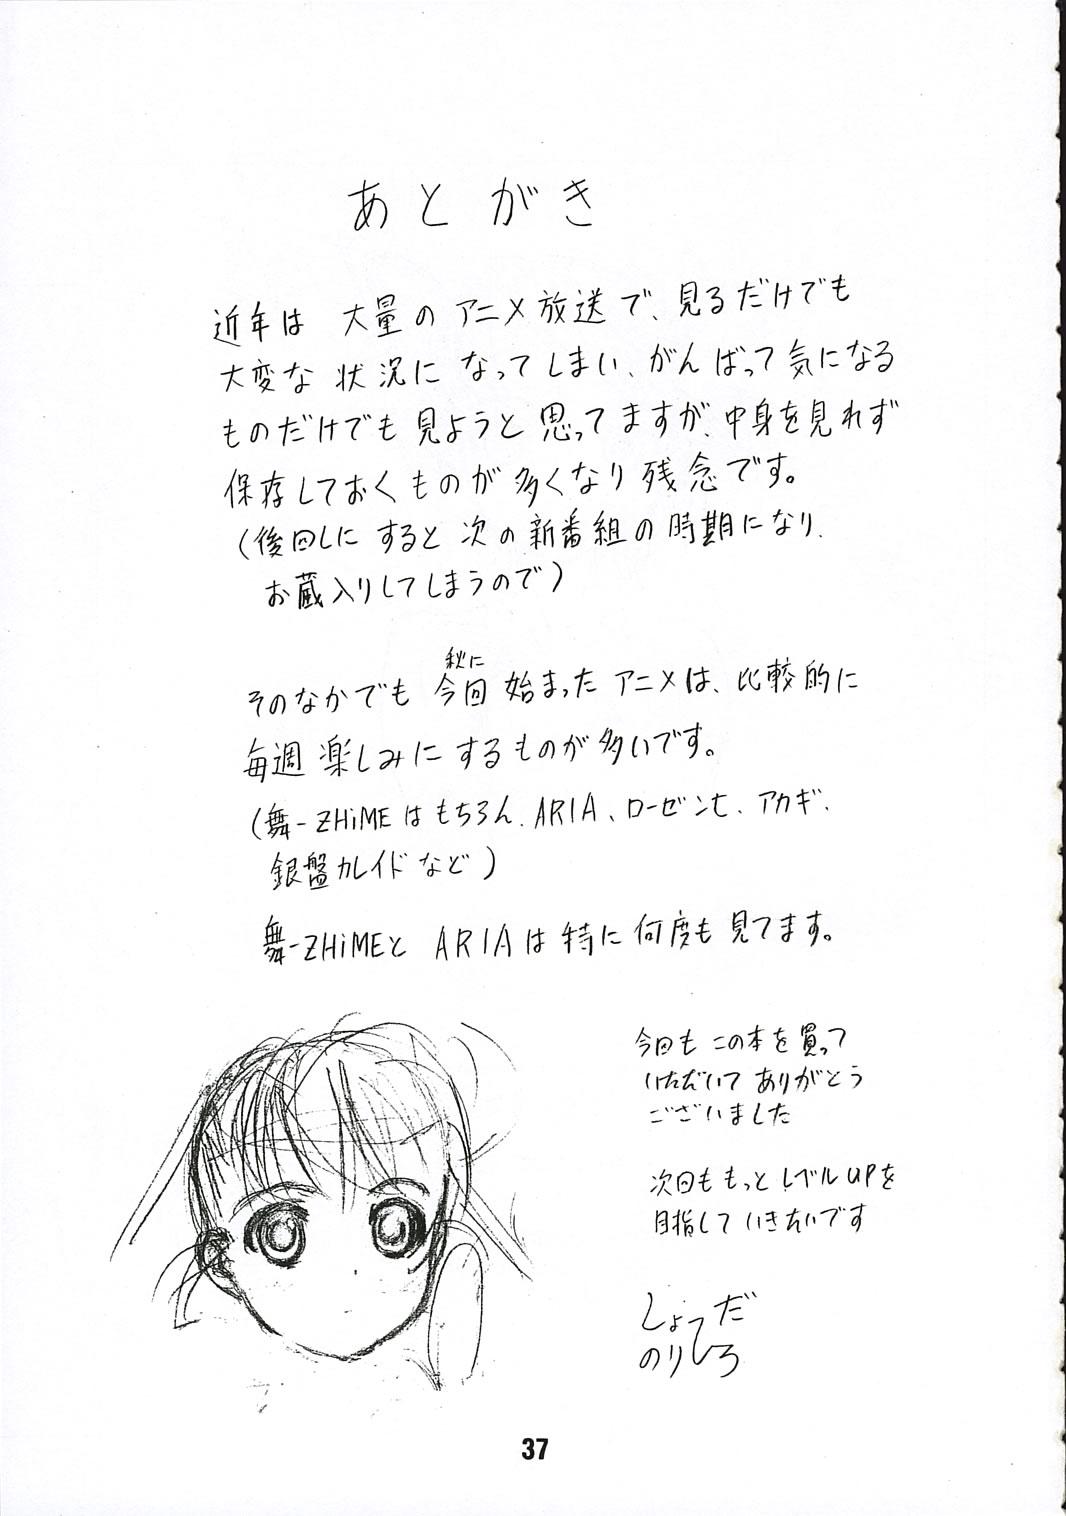 あとがき
近年は 大量のアニメ放送で、見るだけでも
大変な 状況に なってしまい、がんばって気になる
ものだけでも 見ようと 思ってますが、中身を見れず
保存しておくものが 多くなり 残念です。
(後回しに すると 次の新番組の時期になり、
お蔵入りしてしまうので)
秋に
そのなかでも 今回 始まった アニメは、比較的に
毎週 楽しみに するものが 多いです。
(舞-ZHiMEはもちろん、ARIA、ローゼンも、アカギ、
銀盤カレイド など)
舞-ZHiMEと ARIAは特に 何度も 見てます。
今回も この本を 買って
いただいて ありがとう
ございました
次回も もっと レベルUPを
目指して いきたいです
しょうだ
のりひろ
37